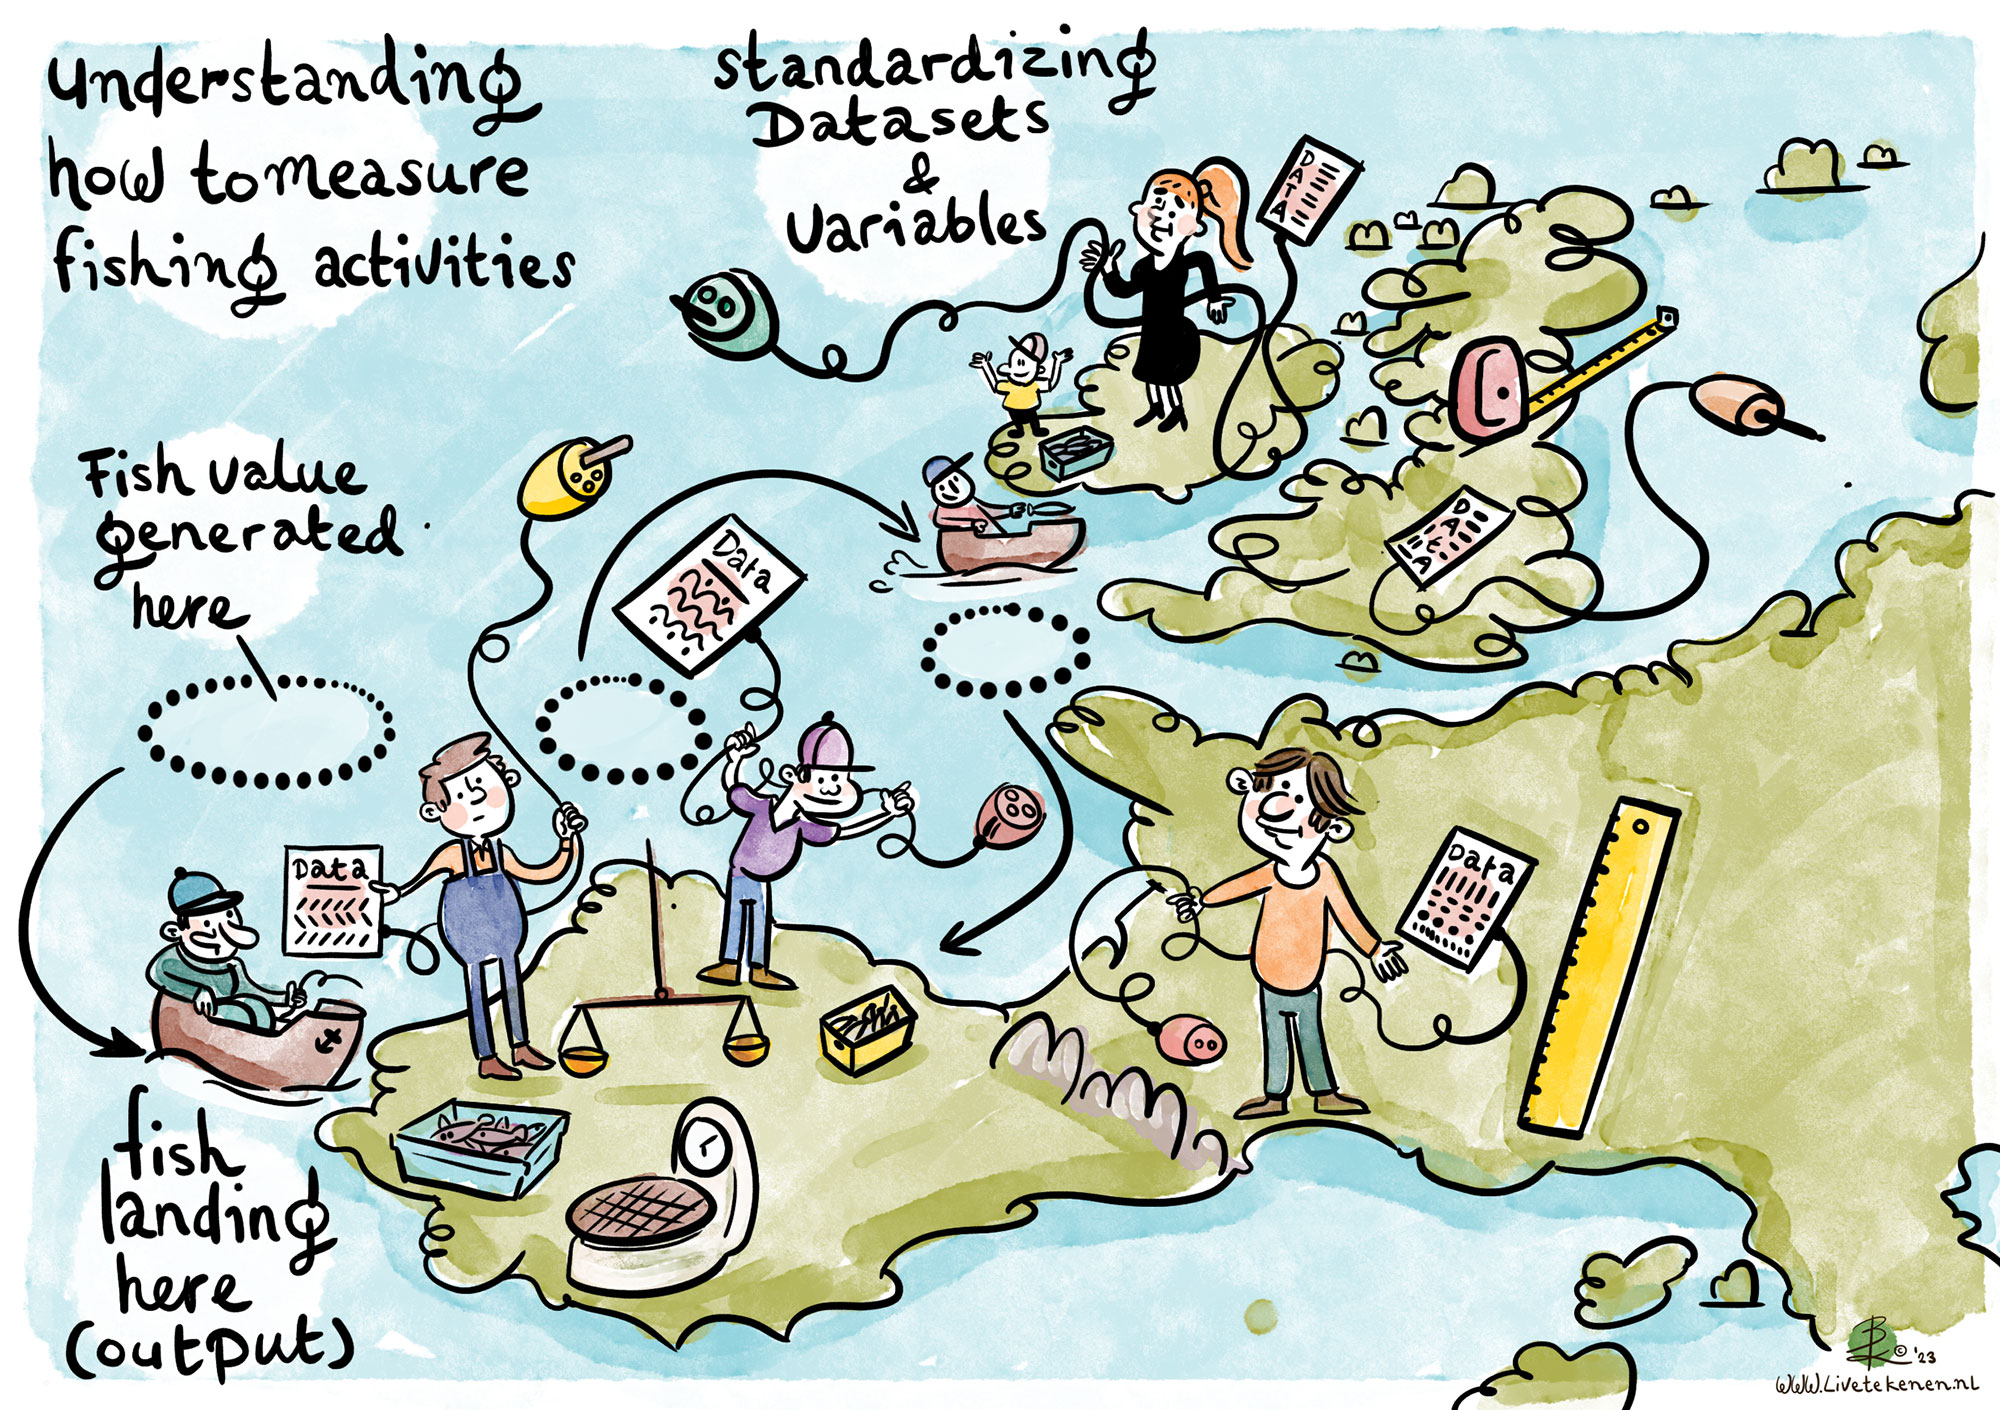 Understanding
how to measure
fishing activities
standardizing
Datasets
&
Variables
DATA
Fish value
generated
here
Data
DAtA
Data
Data
fish
landing
here
(output)
© '23
www.Livetekenen.nl